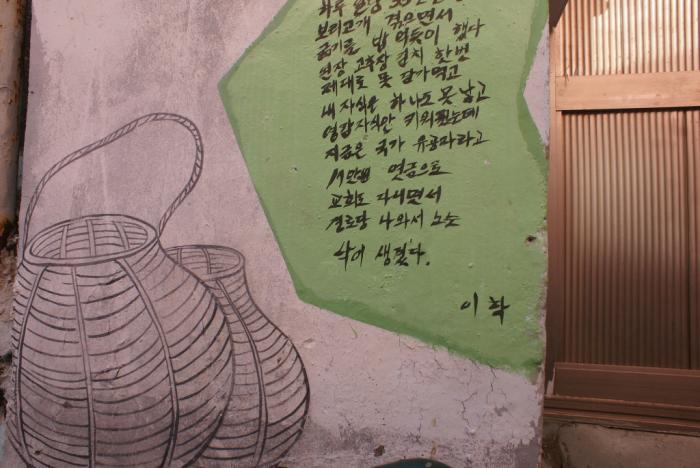 하루
보리고개 겪으면서
굶기를 밥 먹듯이 했다
된장 고추장 김치 한번
제대로 못 담가먹고
내 자식은 하나도 못 낳고
영감자식만 키워줬는데
지금은 국가 유공자라고
연금으로
교회도 다니면서
경로당 나와서 노는
낙이 생겼다.
이 학